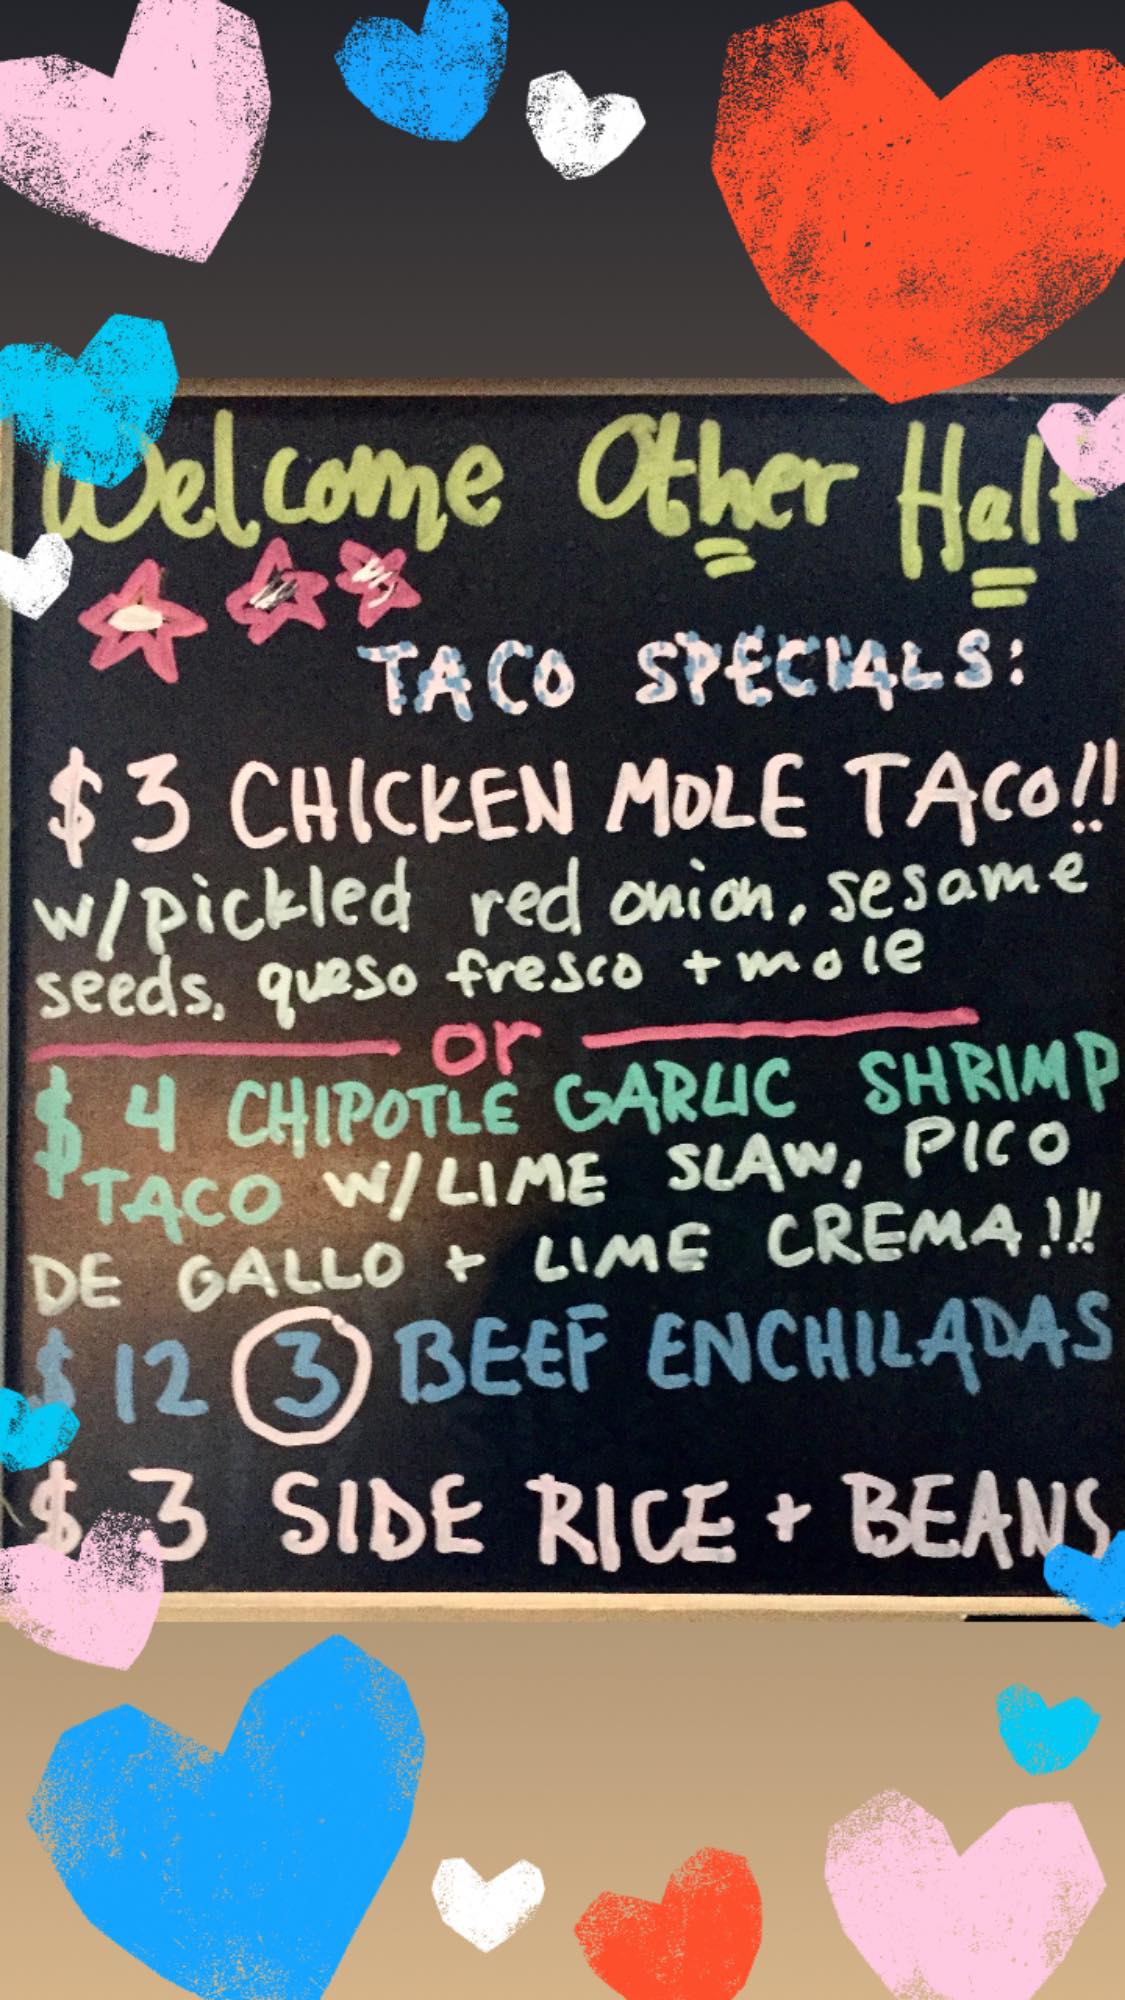 Welcome Other Half
TACO SPECIALS:
$3 CHICKEN MOLE TACO!!
w/pickled red onion, sesame
seeds, queso fresco + mole
or
$4 CHIPOTLE GARLIC SHRIMP
TACO W/LIME SLAW, PICO
DE GALLO + LIME CREMA!!!
$12 3 BEEF ENCHILADAS
$3 SIDE RICE + BEANS